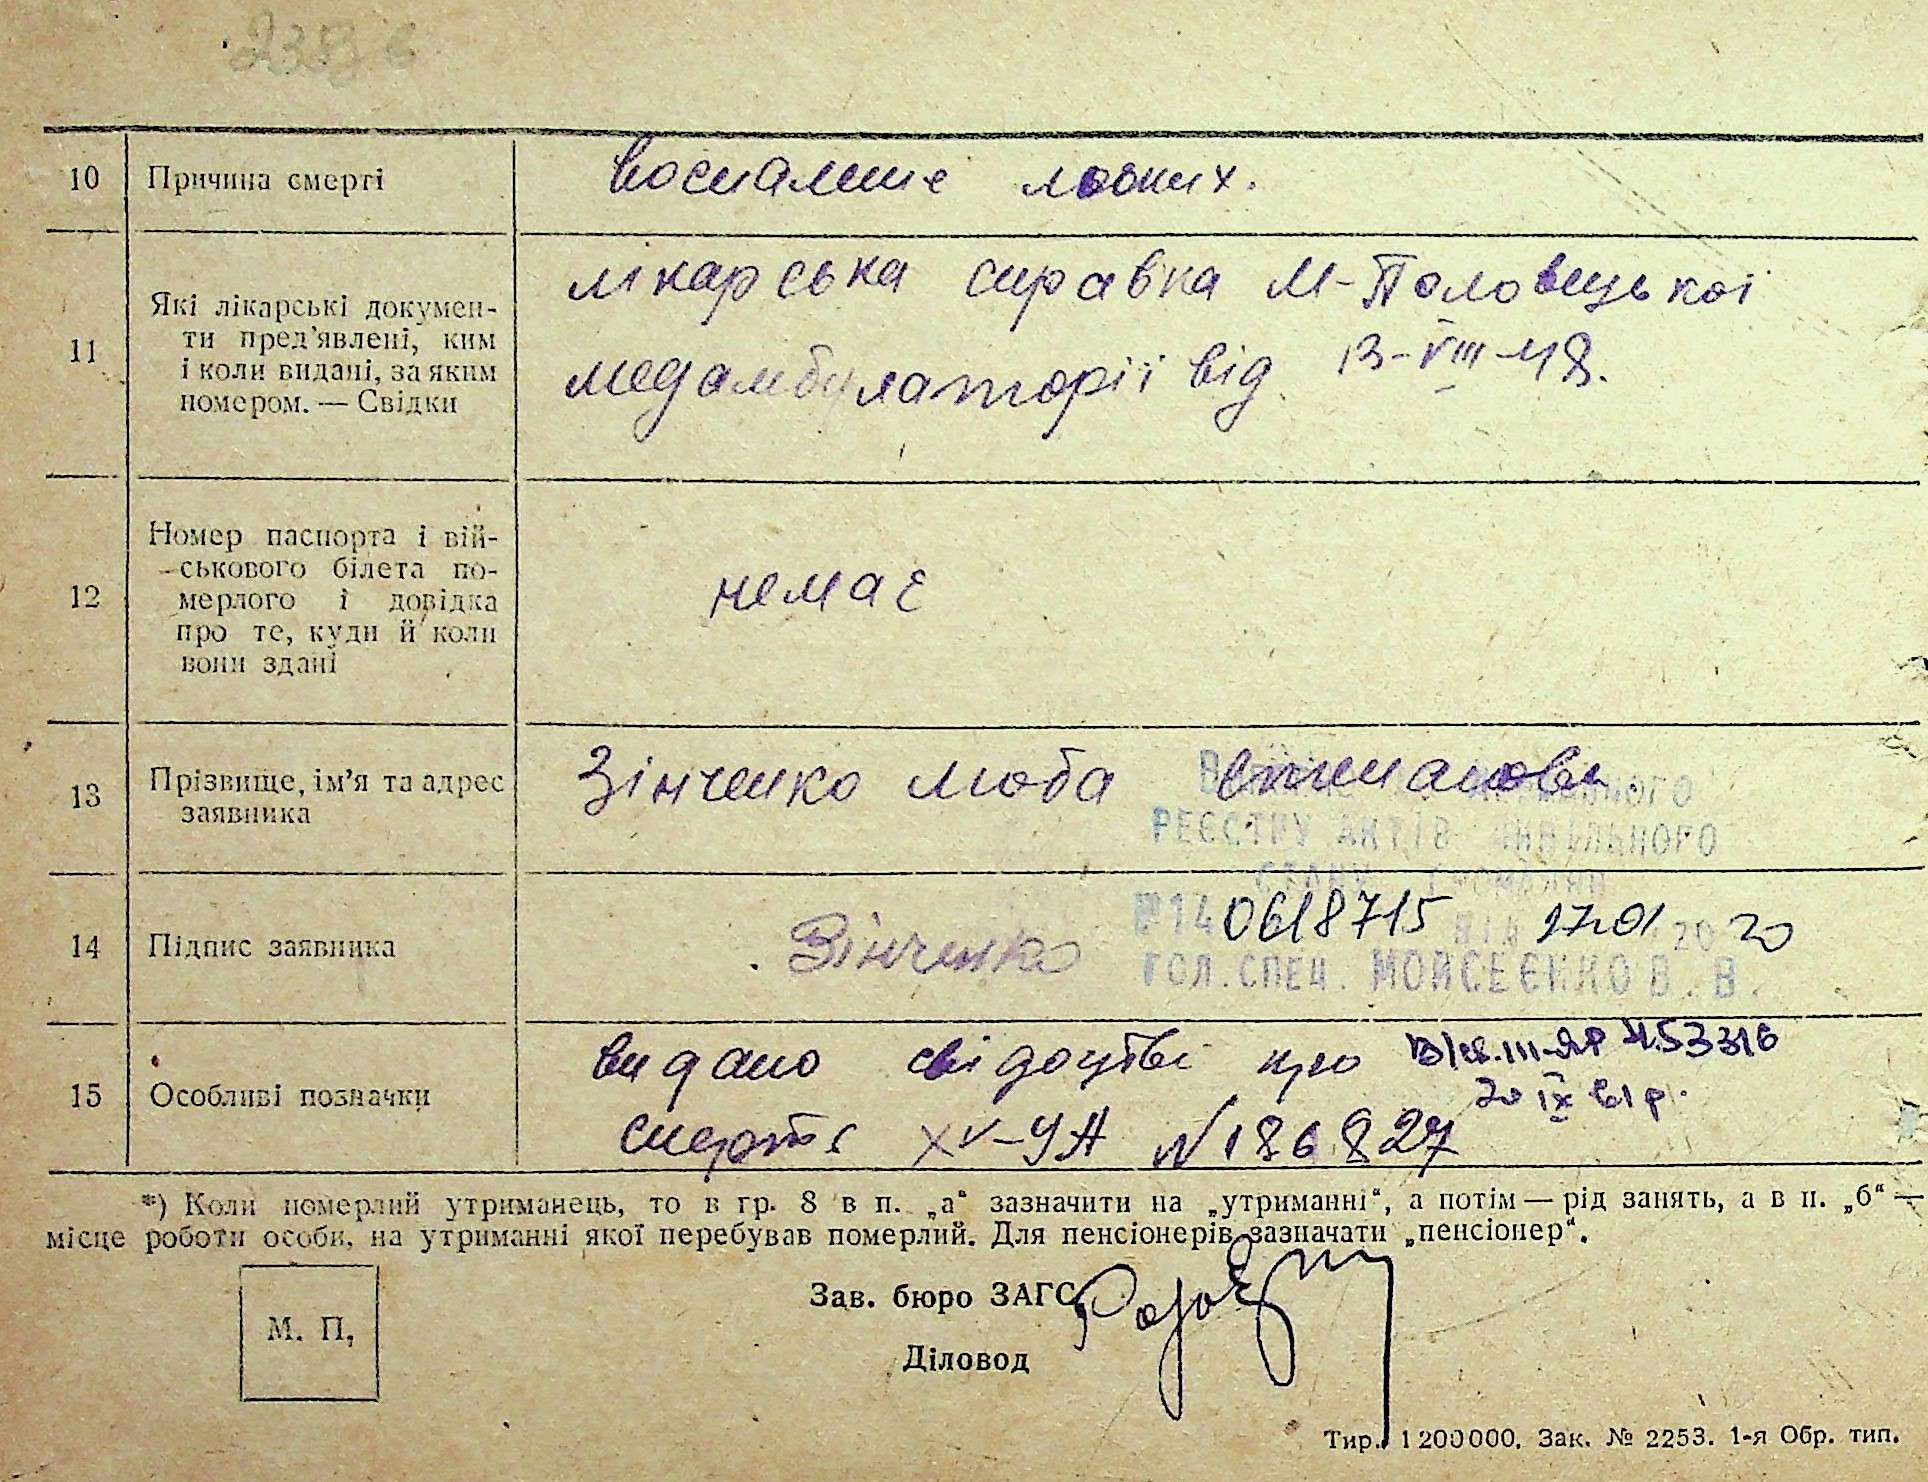 10 Причина смерті воспаление легких.
11 Які лікарські докумен-
ти пред'явлені, ким
і коли видані, за яким
номером. — Свідки
лікарська справка М-Половецької
медамбулаторії від 13-VIII-48.
12 Номер паспорта і вій-
ськового білета по-
мерлого і довідка
про те, куди й коли
вони здані
немає
13 Прізвище, ім'я та адрес
заявника
Зінченко Люба
РЕЄСТРУ АКТІВ ЦИВІЛЬНОГО
СТАНУ ГРОМАДЯН
14 Підпис заявника Зінченко
№ 14 0618715 ВІД 27.01 2020
ГОЛ. СПЕЦ. МОЙСЕЄНКО В. В.
15 Особливі позначки
видано свідоцтві про
смерть XV-УА № 186827
III-ЯР №53316
20 IX 61 р.
*) Коли померлий утриманець, то в гр. 8 в п. „а“ зазначити на „утриманні“, а потім — рід занять, а в п. „б“ —
місце роботи особи, на утриманні якої перебував померлий. Для пенсіонерів зазначати „пенсіонер“.
М. П.
Зав. бюро ЗАГС
Діловод
Тир. 1200000. Зак. № 2253. 1-я Обр. тип.